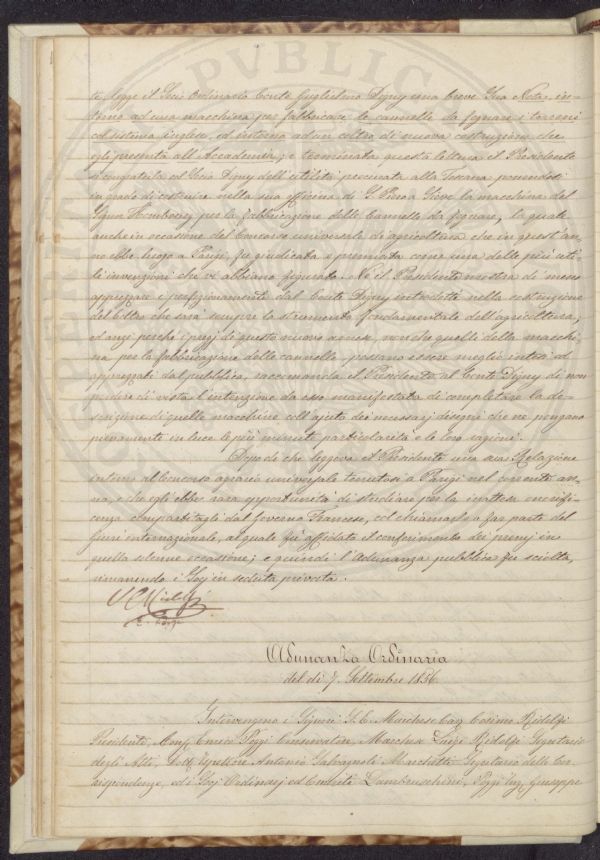 te, legge il Socio Ordinario Conte Guglielmo Digny una breve Sua Nota in-
torno ad una macchina per fabbricare le cannelle da fognare i terreni
col sistema inglese, ed intorno ad un coltro di nuova costruzione che
egli presenta all'Accademia; e terminata questa lettura il Presidente
si congratula col Socio Digny dell'utilità procurata alla Toscana ponendosi
in grado di costruire nella sua officina di S. Piero a Sieve la macchina del
Signor per la fabbricazione delle Cannelle da fognare, la quale
anche in occasione del Concorso universale di agricoltura che in quest'an-
no ebbe luogo a Parigi, fu giudicata e premiata come una delle più uti-
li invenzioni che vi abbiano figurato. Nè il Presidente mostra di meno
apprezzare i perfezionamenti dal Conte Digny introdotti nella costruzione
del Coltro che sarà sempre lo strumento fondamentale dell'agricoltura;
ed anzi perchè i pregj di questo nuovo arnese, non che quelli della macchi-
na per la fabbricazione delle cannelle, possano essere meglio intesi ed
apprezzati dal pubblico, raccomanda il Presidente al Conte Digny di non
perdere di vista l'intenzione da esso manifestata di completare la de-
scrizione di quelle macchine coll'ajuto dei necessarj disegni che ne pongano
pienamente in luce le più minute particolarità e le loro ragioni.
Dopo di che leggeva il Presidente una sua Relazione
intorno al Concorso agrario universale tenutosi a Parigi nel corrente an-
no, e che egli ebbe rara opportunità di studiare per la inattesa onorifi-
cenza compartitagli dal Governo Francese, col chiamarlo a far parte del
Giurì internazionale, al quale fu affidato il conferimento dei premj in
quella solenne occasione; e quindi l'adunanza pubblica fu sciolta,
rimanendo i Socj in seduta privata.
Adunanza Ordinaria
del dì 7. Settembre 1856
Intervengono i Signori S. E. Marchese Cav. Cosimo Ridolfi
Presidente, Enrico Poggi Conservatore, Marchese Luigi Ridolfi Segretario
degli Atti, Dott. Ispettore Antonio Salvagnoli Marchetti Segretario delle Cor-
rispondenze, ed i Socj Ordinarj ed Emeriti Lambruschini, Poggi Giuseppe